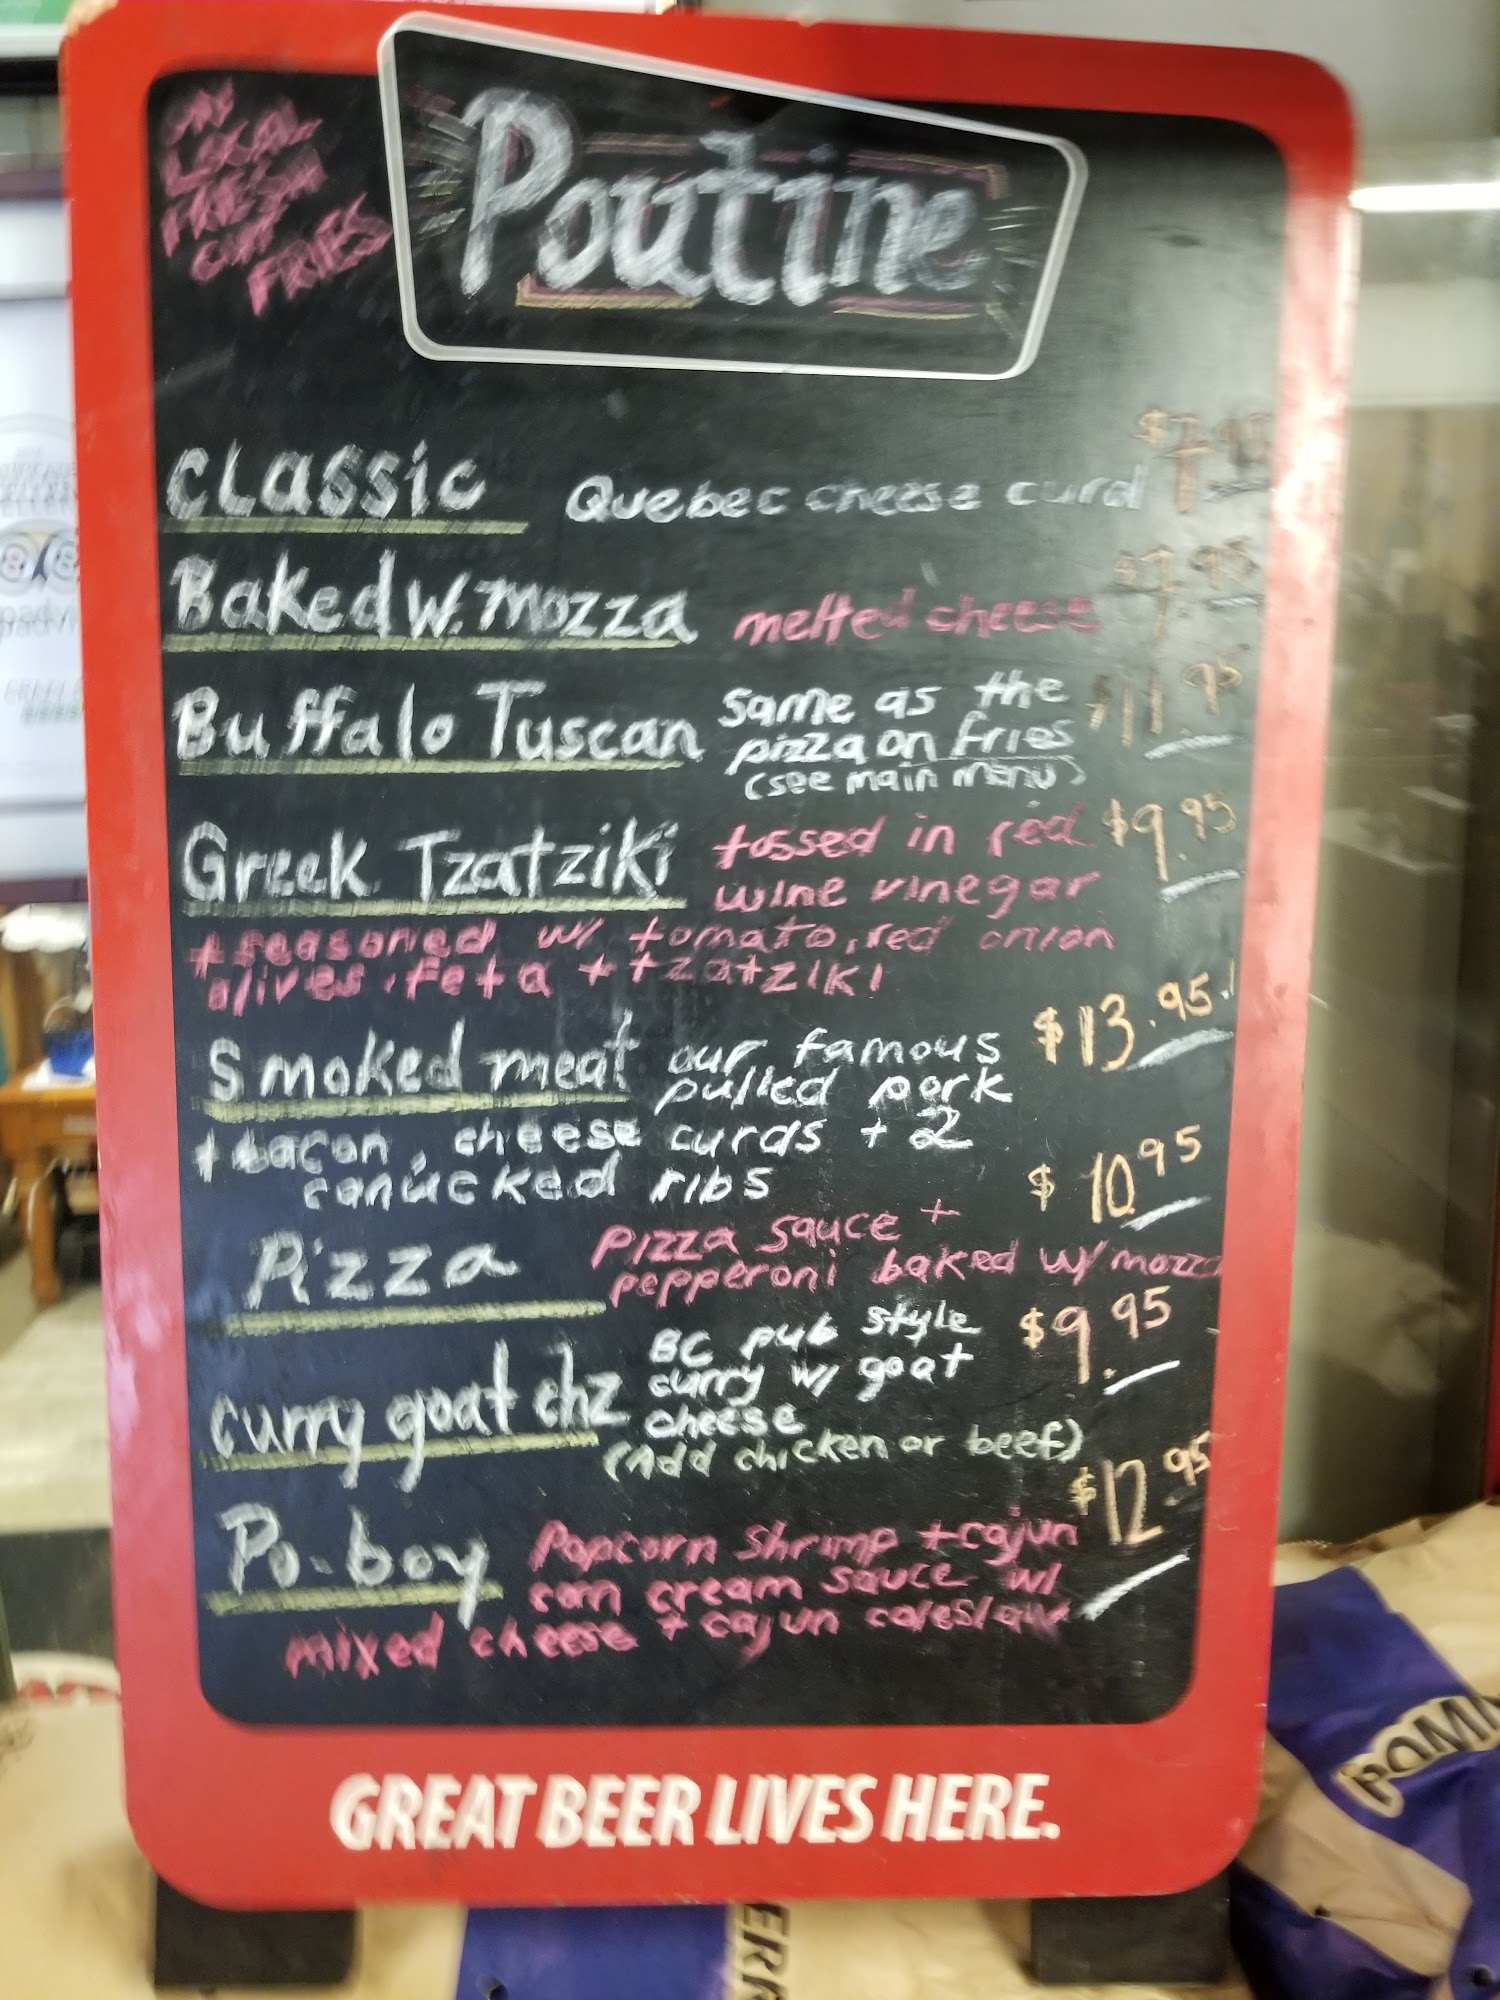 LOCAL
FRESH
CUT
FRIES
Poutine
Classic Quebec cheese curd $7.95
Baked w. mozza melted cheese $7.95
Buffalo Tuscan same as the $11.95
pizza on fries
(see main menu)
Greek Tzatziki tossed in red $9.95
wine vinegar
+ seasoned w/ tomato, red onion
olives, feta + tzatziki
Smoked meat our famous $13.95
pulled pork
+ bacon, cheese curds + 2
canucked ribs
Pizza pizza sauce + $10.95
pepperoni baked w/ mozza
curry goat chz BC pub style $9.95
curry w/ goat
cheese
(Add chicken or beef)
Po-boy Popcorn shrimp + cajun $12.95
corn cream sauce w/
mixed cheese + cajun coleslaw
GREAT BEER LIVES HERE.